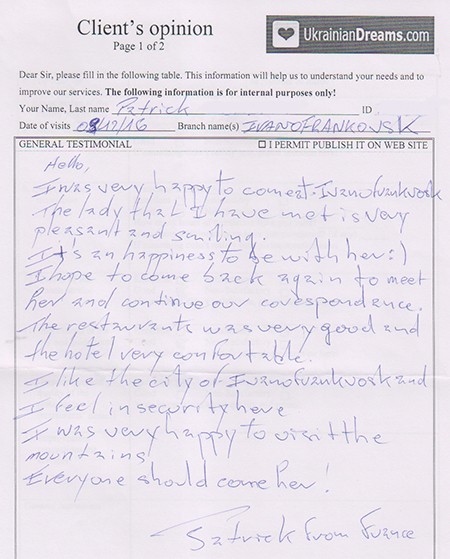 Client's opinion
Page 1 of 2
UkrainianDreams.com
Dear Sir, please fill in the following table. This information will help us to understand your needs and to
improve our services. The following information is for internal purposes only!
Your Name, Last name Patrick ID
Date of visits 09/12/16 Branch name(s) IVANOFRANKOVSK
GENERAL TESTIMONIAL ☐ I PERMIT PUBLISH IT ON WEB SITE
Hello,
I was very happy to come at Ivanofrankvosk
The lady that I have met is very
pleasant and smiling.
It's an happiness to be with her :)
I hope to come back again to meet
her and continue our correspondance.
The restaurants was very good and
the hotel very confortable.
I like the city of Ivanofrankvosk and
I feel in security here
I was very happy to visit the
mountains
Everyone should come her!
Patrick from France